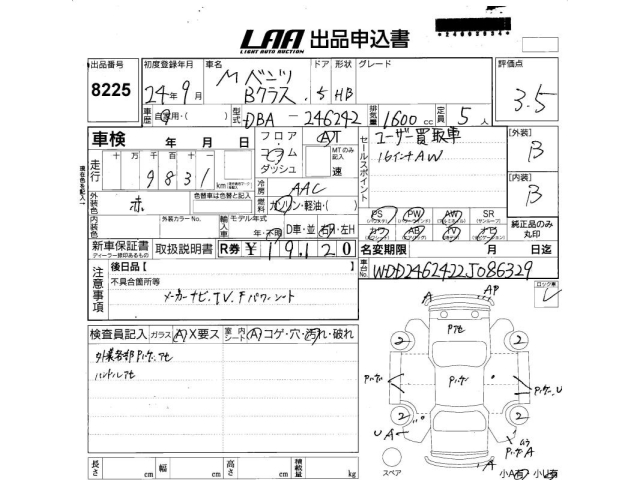 LAA 出品申込書
LIGHT AUTO AUCTION
出品番号 8225
初度登録年月 24年9月
車名 Mベンツ Bクラス
ドア 形状 グレード
5 HB
評価点 3.5
車歴 自家用・( )
型式 DBA-246242
排気量 1600 cc
定員 5人
車検 年 月 日
フロア・コラム・ダッシュ
AT
MTのみ記入 速
セールスポイント
ユーザー買取車
16インチAW
[外装] B
[内装] B
走行 十 万 千 百 十 一
9831 km
冷房 AAC
燃料 ガソリン・軽油・( )
現在色を記入↑
外装色 赤
色替車は色替と記入
内装色
外装カラーNo.
輸入車 モデル年式
年・不明 D車・並 右H・左H
PS PW AW SR
カワ AB TV ナビ
純正品のみ丸印
新車保証書
ディーラー捺印あるもの
取扱説明書
R券 ¥ 19,120
名変期限 月 日迄
車台No. WDD2462422J086329
ロック車
注意事項
後日品[
不具合箇所等
メーカーナビ.TV.Fパワーシート
検査員記入 ガラス A X要ス 室内シート A コゲ・穴・汚れ・破れ
外装各部Pハゲ.アセ
ハンドルアセ
A AP
Pアセ
2 2
Pハゲ Pハゲ Pハゲ.U
2 2
U A
Pハゲ A
A
スペア
小A有 小U有
長さ cm 幅 cm 高さ cm 積載量 kg